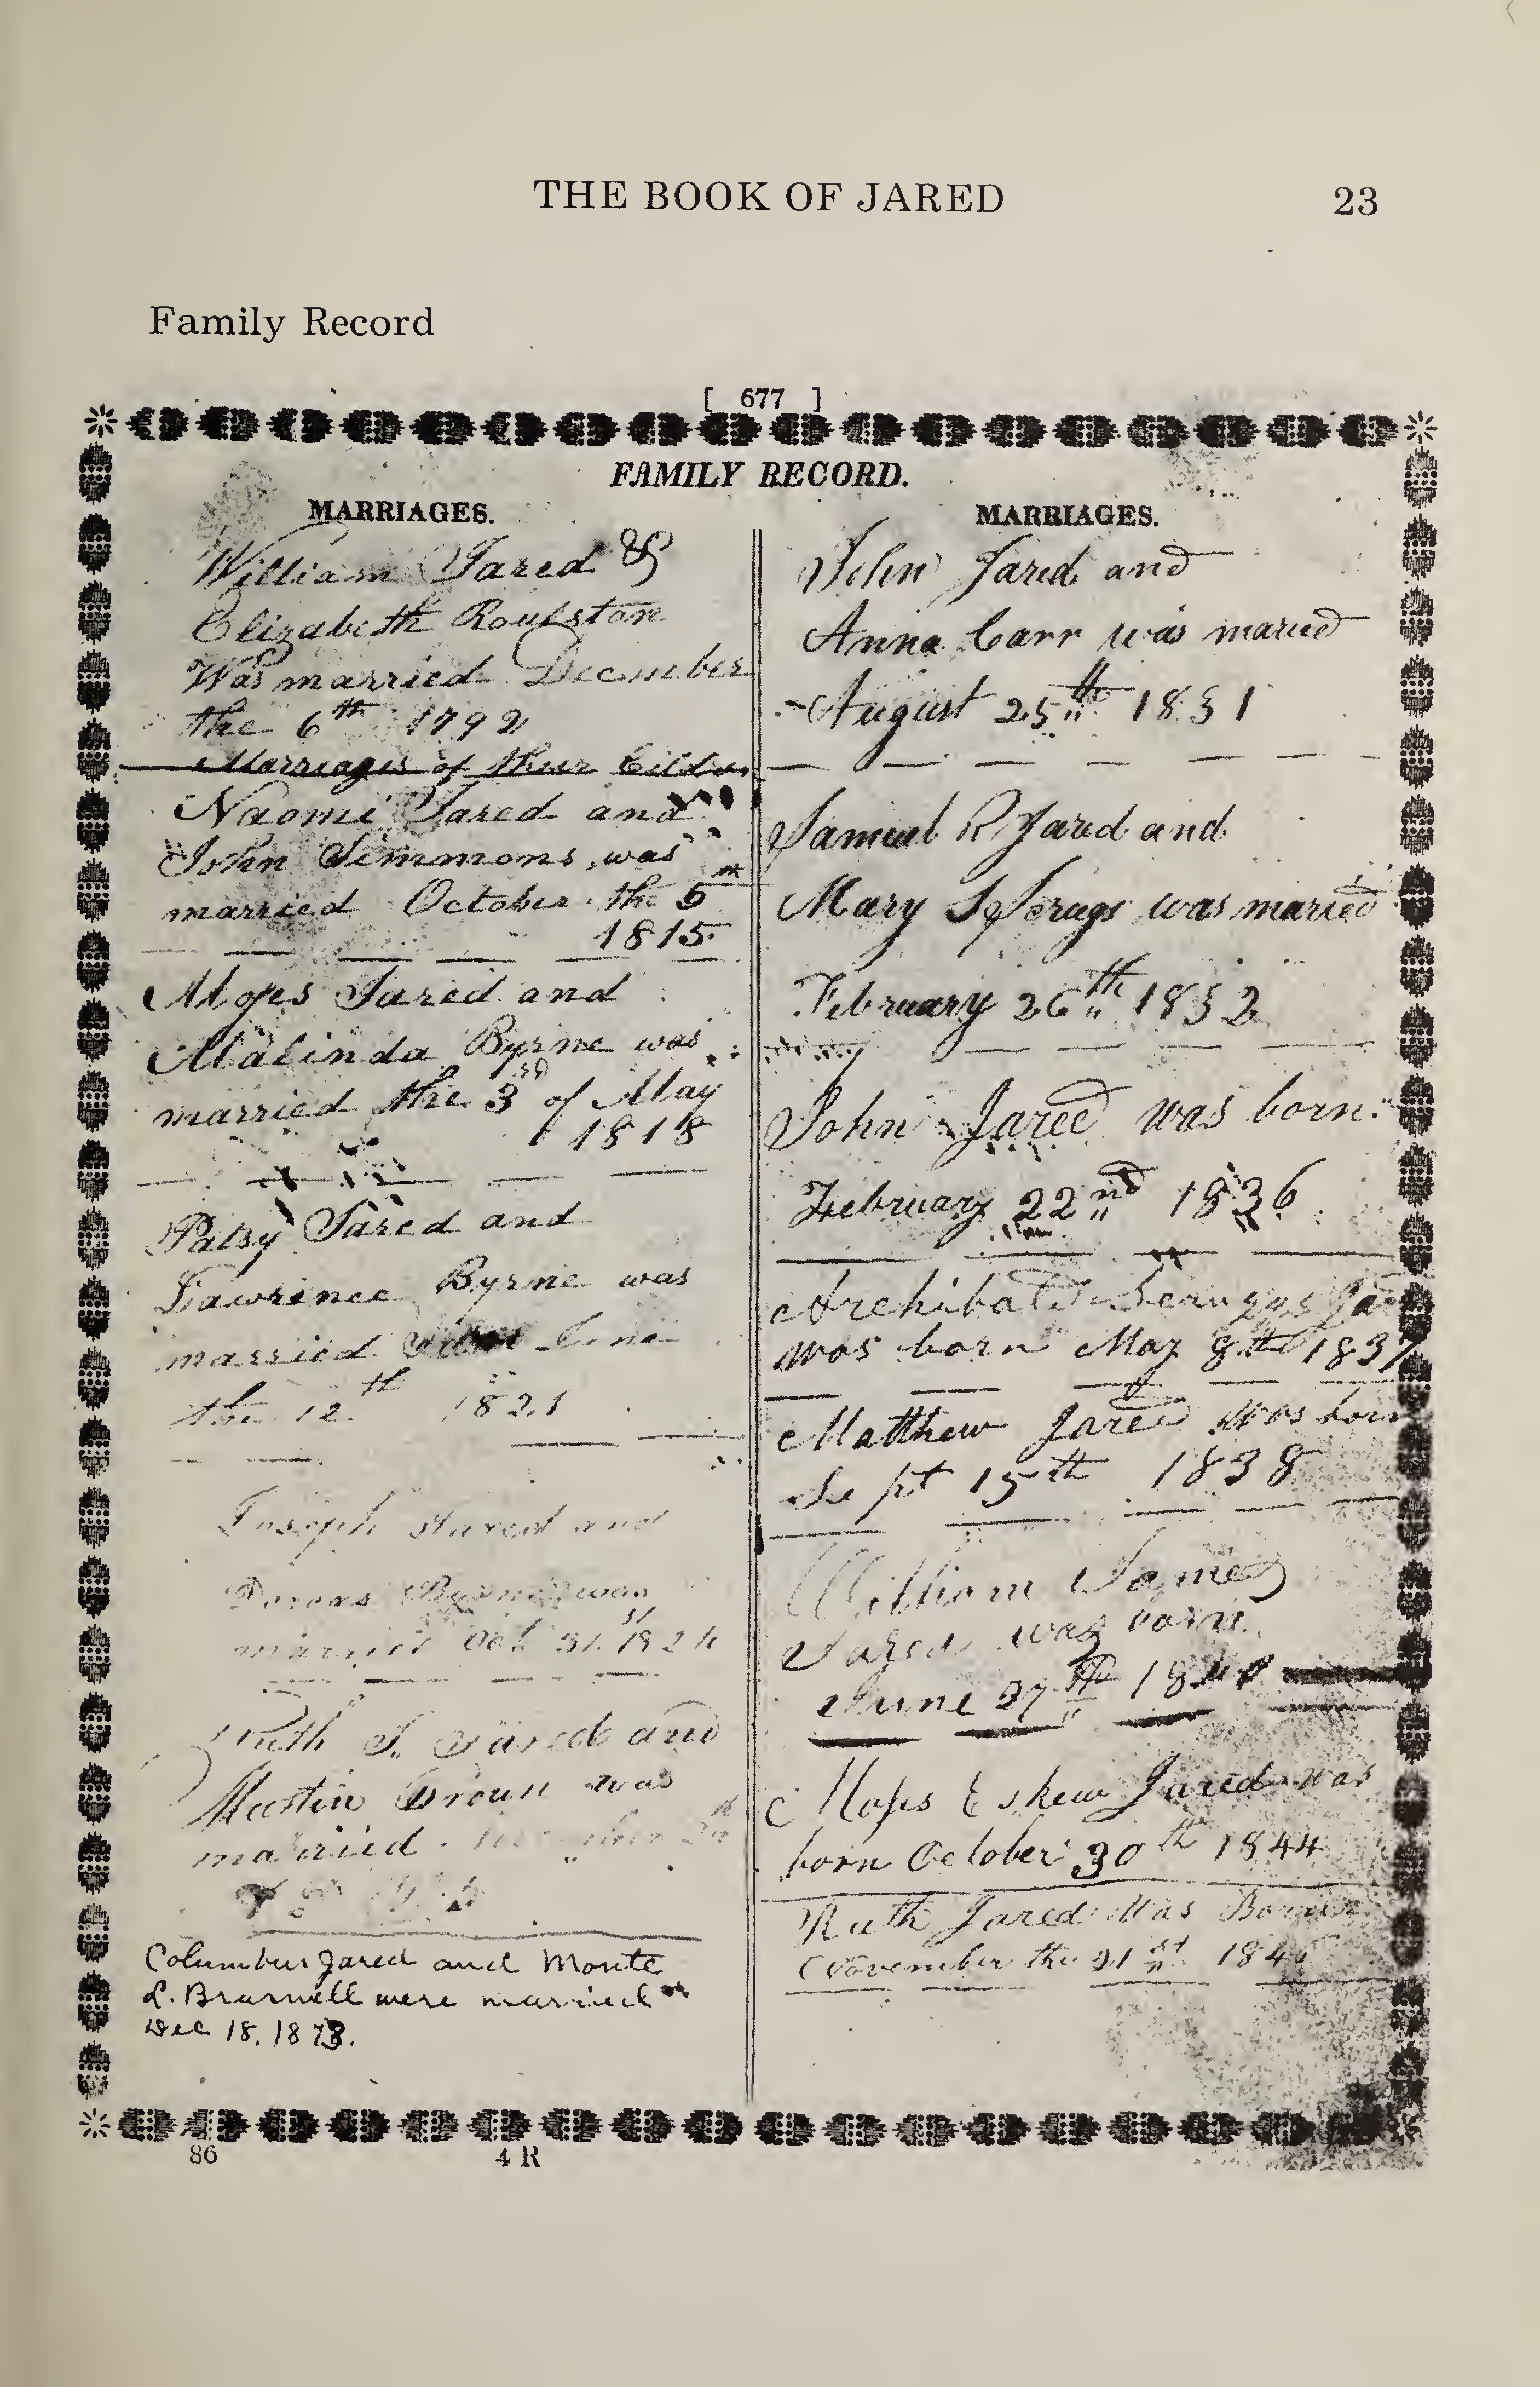 THE BOOK OF JARED
23
Family Record
[ 677 ]
FAMILY RECORD.
MARRIAGES.
William Jared &
Elizabeth Roulston
Was married December
the 6th 1792
Marriages of their Cildon
Naomi Jared and
John Simmons was
married October the 5th
1815
Moses Jared and
Malinda Byrne was
married the 3rd of May
1818
Patsy Jared and
Lawrence Byrne was
married
the 12th 1821
Joseph Jared and
Byrne was
married Oct 31st 1824
Ruth S. Jared and
Martin Brown was
married
Columbus Jared and Monte
L. Brarnell were married
Dec 18, 1873.
MARRIAGES.
John Jared and
Anna Carr was maried
August 25th 1831
Samuel R Jared and
Mary S Scrugs was maried
February 26th 1832
John Jared was born
February 22nd 1836
Archibald Scruggs
was born May 8th 1837
Matthew Jared was born
Sept 15th 1838
William James
Jared was born
June 27th
Moses Eskew Jared was
born October 30th 1844
Ruth Jared Was Born
November the 21st
86
4 R